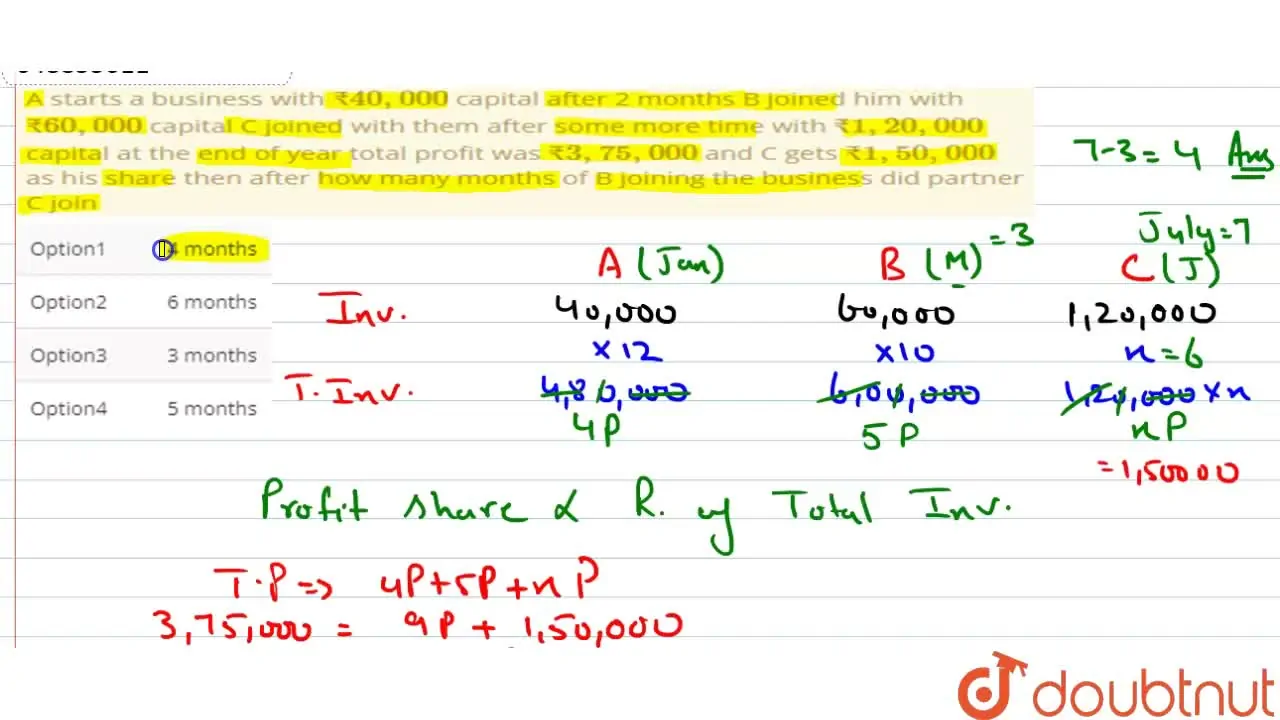 A starts a business with ₹40,000 capital after 2 months B joined him with
₹60,000 capital C joined with them after some more time with ₹1,20,000
capital at the end of year total profit was ₹3,75,000 and C gets ₹1,50,000
as his share then after how many months of B joining the business did partner
C join
7-3=4 Ans
Option1 4 months
Option2 6 months
Option3 3 months
Option4 5 months
July=7
A (Jan) B (M) =3 C (J)
Inv. 40,000 60,000 1,20,000
×12 ×10 n=6
T.Inv. 4,80,000 6,00,000 1,20,000×n
4P 5P nP
=1,50000
Profit share α R. of Total Inv.
T.P => 4P+5P+nP
3,75,000 = 9P + 1,50,000
doubtnut